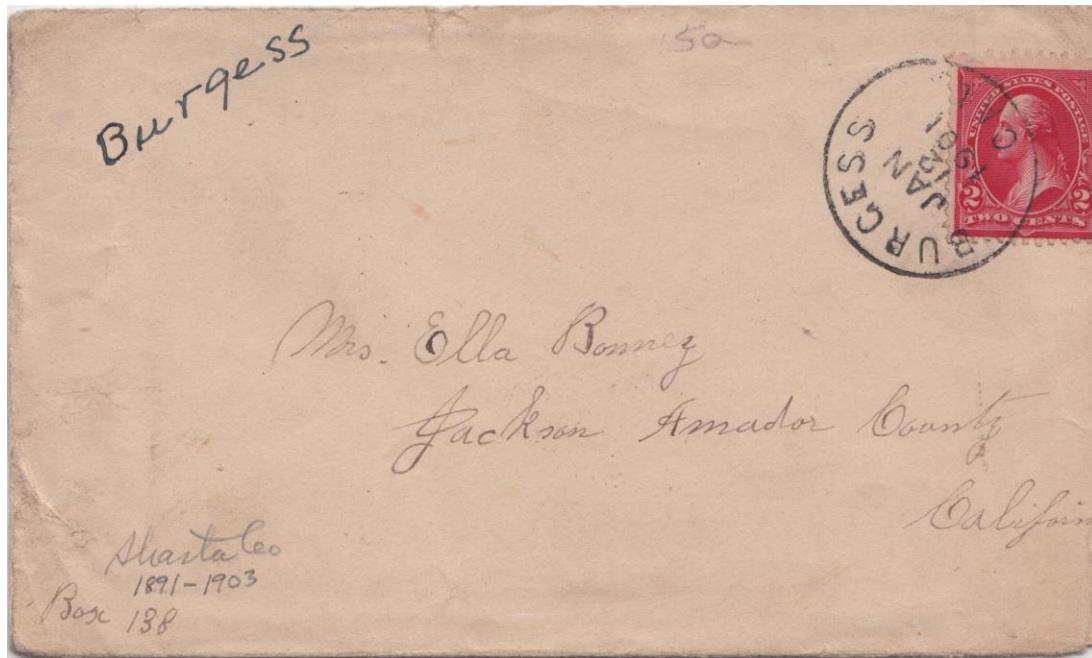 Burgess
50
BURGESS CAL
JAN
15
1901
UNITED STATES POSTAGE
2 2
TWO CENTS
Mrs. Ella Bonney
Jackson Amador County
Californ
Shasta Co
1891-1903
Box 138